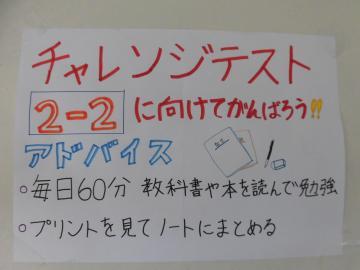 チャレンジテスト
2-2 に向けてがんばろう!!
アドバイス
○毎日60分 教科書や本を読んで勉強
○プリントを見てノートにまとめる